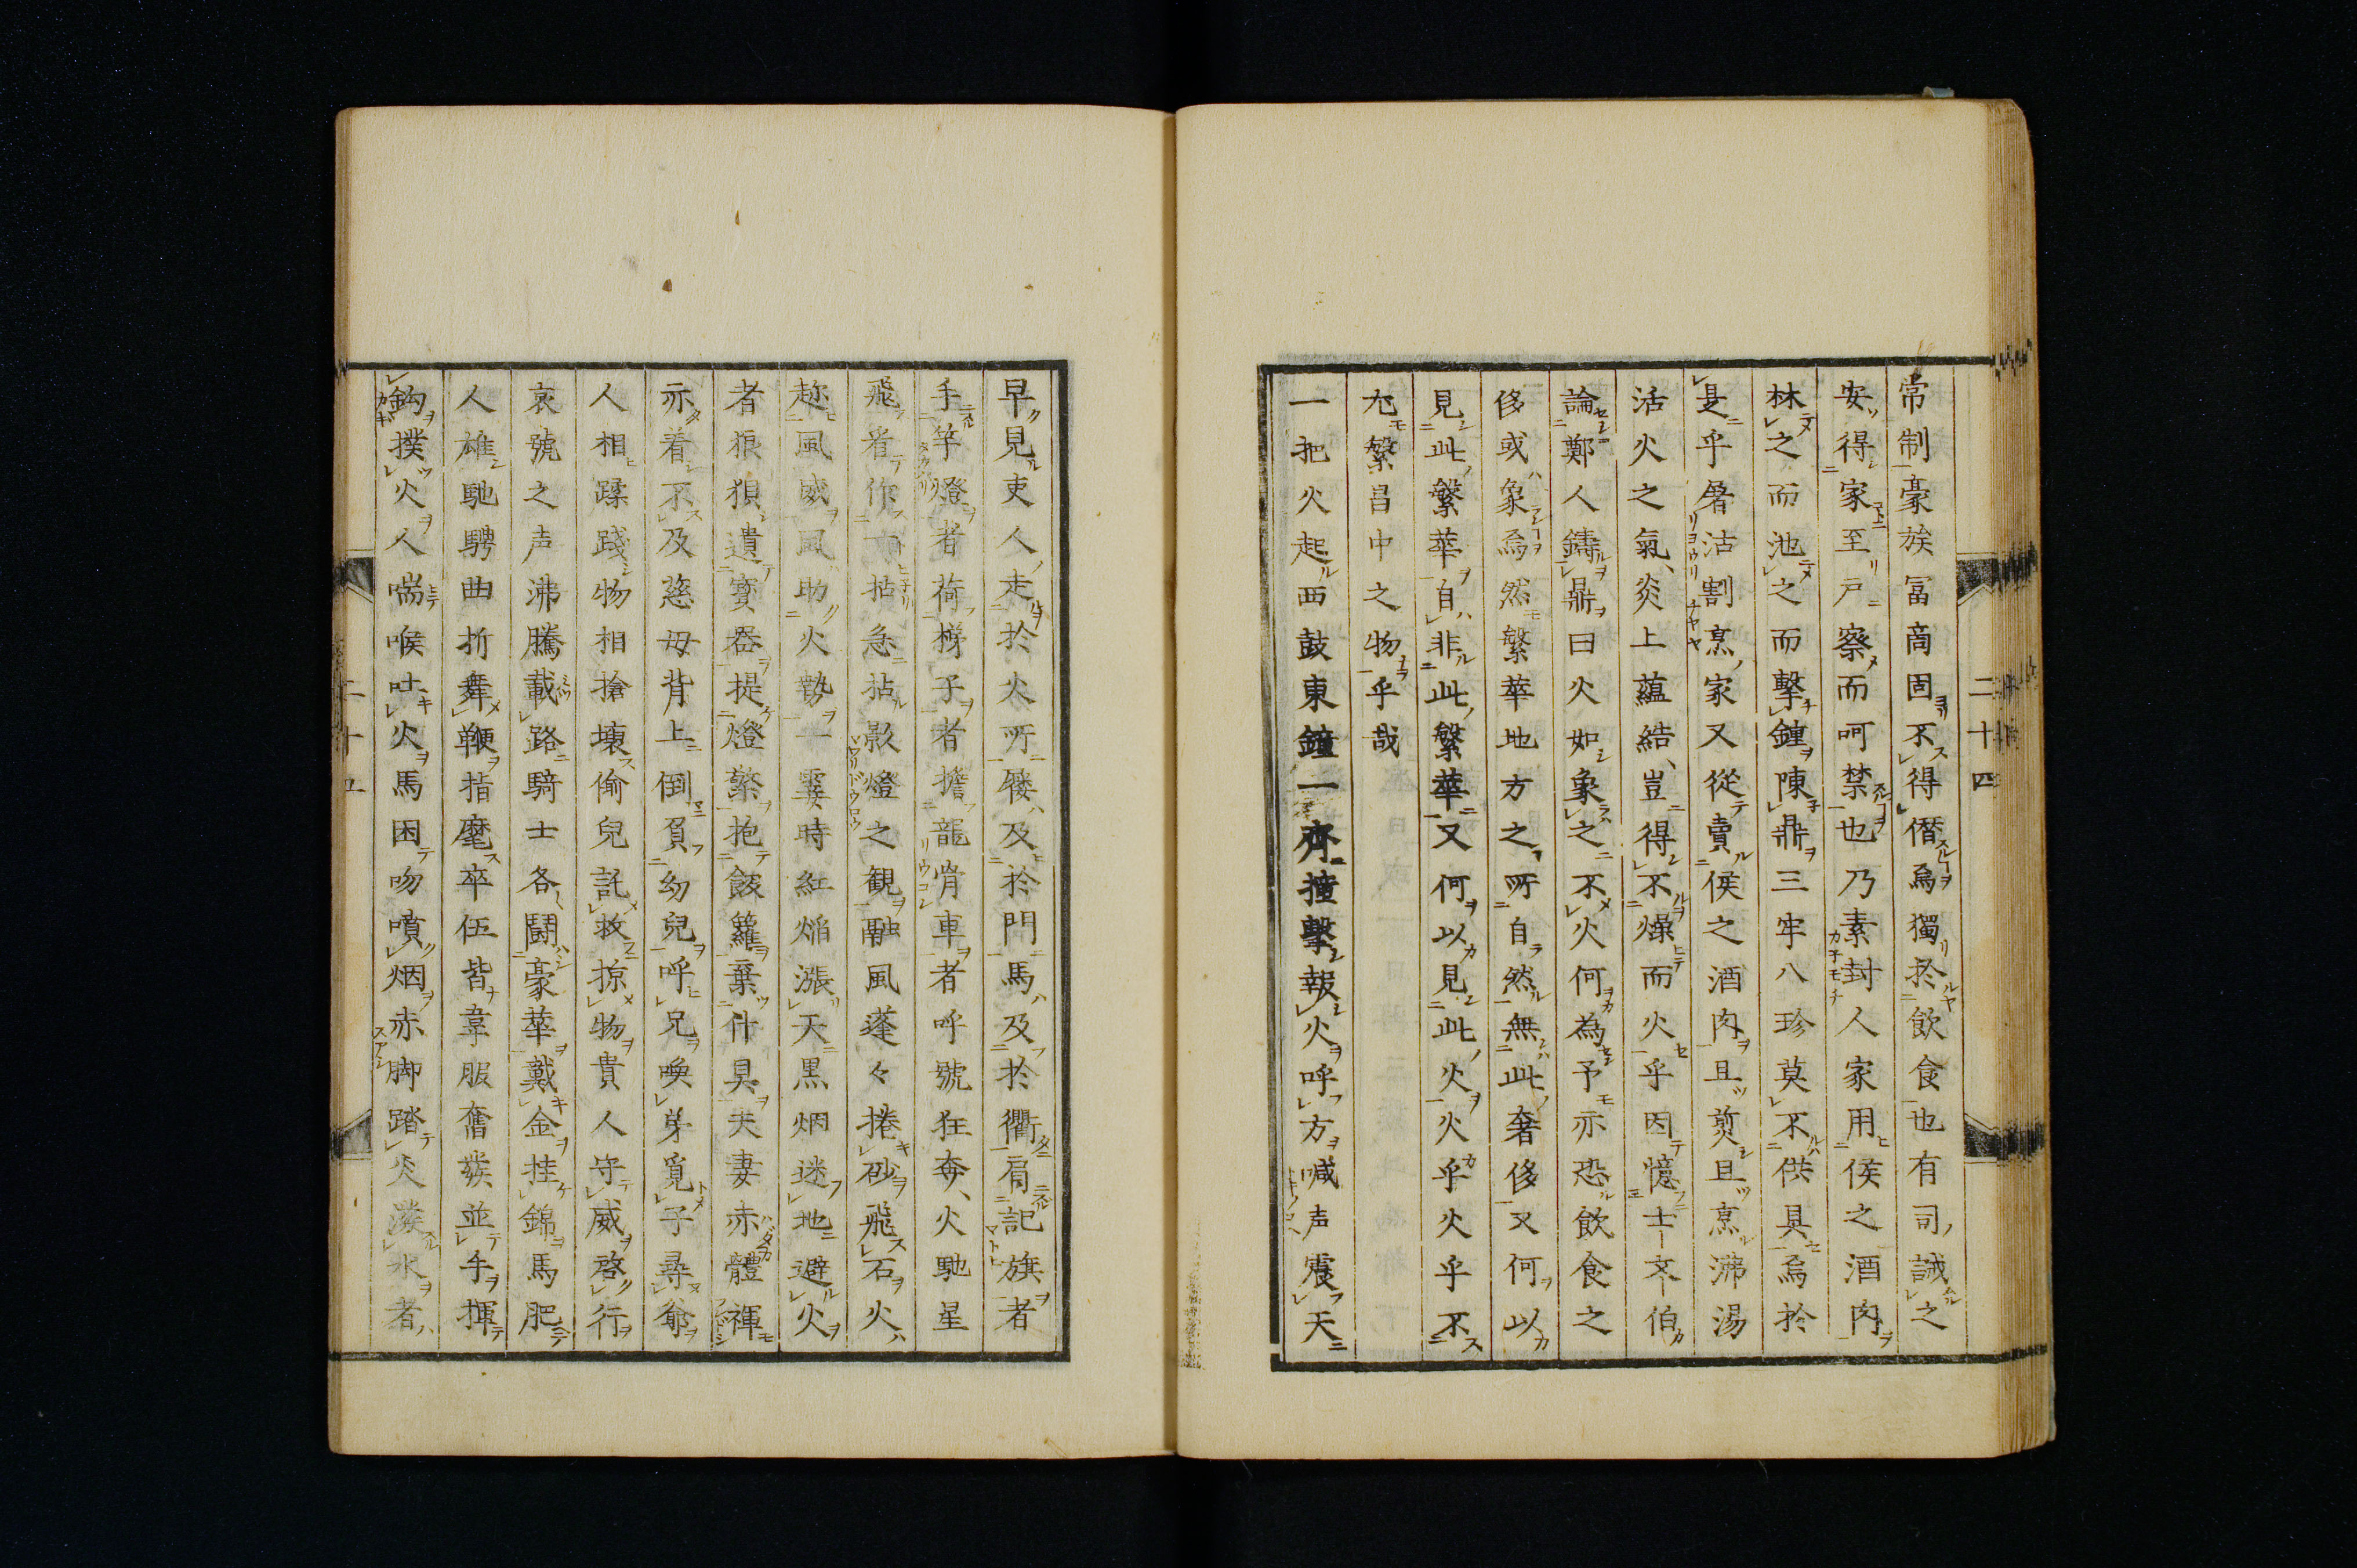 常制豪族冨商固不得僭焉獨於飲食也有司誡之
安得家至戸察而呵禁也乃素封人家用侯之酒肉
林之而池之而擊鐘陳鼎三牢八珍莫不供具焉於
是乎屠沽割烹家又從賣侯之酒肉且煎且烹沸湯
活火之氣炎上蘊結豈得不燥而火乎因憶士文伯
論鄭人鑄鼎曰火如象之不火何為予亦恐飲食之
侈或象焉然繁華地方之所自然無此奢侈又何以
見此繁華自非此繁華又何以見此火火乎火乎不
尤繁昌中之物乎哉
一把火起西鼓東鐘一齊撞擊報火呼方喊声震天
二十四
早見吏人走於火所屐及於門馬及於衢肩記旗者
手竿燈者荷梯子者擔龍骨車者呼號狂奔火馳星
飛看作一拈急拈影燈之観融風蓬々捲砂飛石火
趂風威風助火勢一霎時紅焔漲天黒烟迷地避火
者狼狽遺寳器提燈檠抱飯籮棄什具夫妻赤體褌
亦着不及慈母背上倒負幼兒呼兄喚弟覓子尋爺
人相蹂踐物相搶壊偷兒託救掠物貴人守威啓行
哀號之声沸騰載路騎士各鬪豪華戴金挂錦馬肥
人雄馳騁曲折舞鞭指麾卒伍皆韋服奮發並手揮
鈎撲火人喘喉吐火馬困吻噴烟赤脚踏炎潑水者
二十五